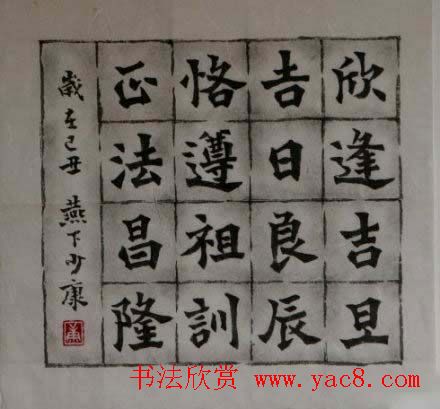 欣逢吉旦
吉日良辰
恪遵祖訓
正法昌隆
歲在己丑 燕下少康
書法欣赏 www.yac8.com